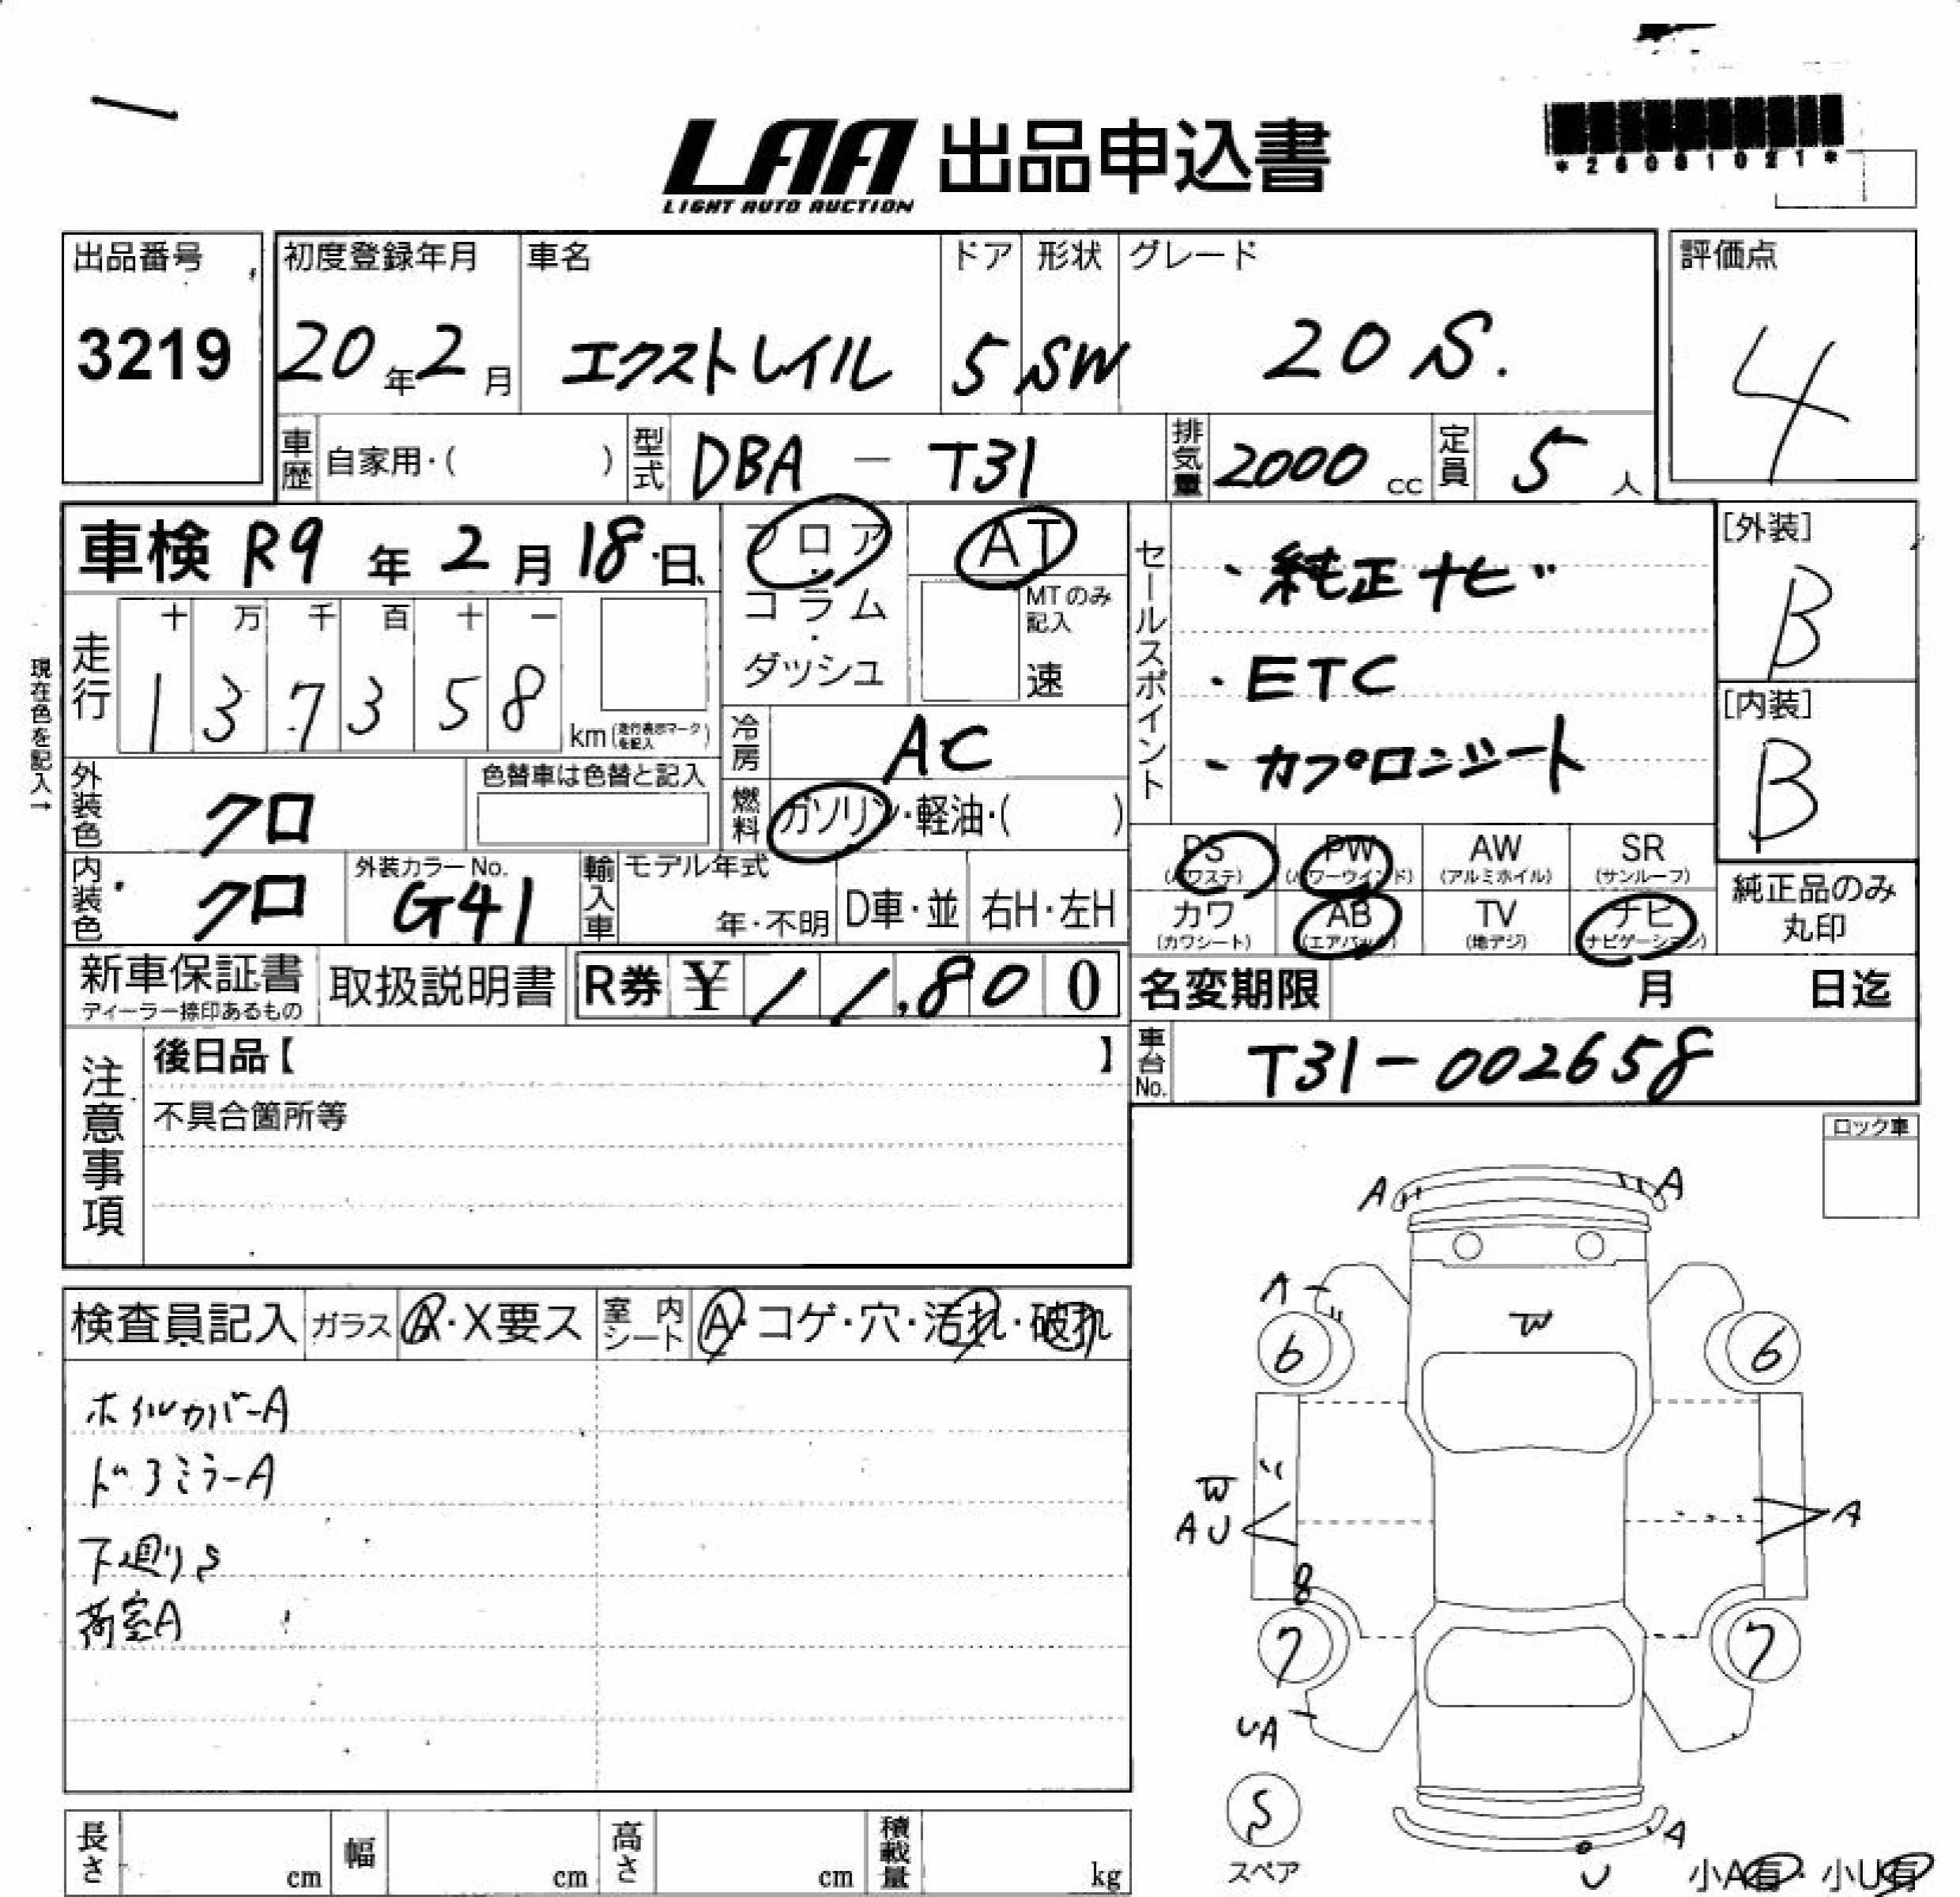 LAA 出品申込書
LIGHT AUTO AUCTION
*26081021*
出品番号
3219
初度登録年月
20年2月
車名
エクストレイル
ドア
5
形状
SW
グレード
20 S.
評価点
4
車歴 自家用・( )
型式 DBA - T31
排気量 2000 cc
定員 5 人
車検 R9年2月18日
フロア・コラム・ダッシュ
AT
MTのみ記入
速
セールスポイント
・純正ナビ
・ETC
・カプロンシート
[外装]
B
[内装]
B
現在色を記入→
走行
十 万 千 百 十 一
1 3 7 3 5 8
km(走行表示マークを記入)
冷房 AC
燃料 ガソリン・軽油・( )
外装色 クロ
色替車は色替と記入
内装色 クロ
外装カラーNo.
G41
輸入車
モデル年式
年・不明
D車・並
右H・左H
PS (パワステ)
PW (パワーウインド)
AW (アルミホイル)
SR (サンルーフ)
カワ (カワシート)
AB (エアバック)
TV (地デジ)
ナビ (ナビゲーション)
純正品のみ丸印
新車保証書
ディーラー捺印あるもの
取扱説明書
R券 ¥ 11,800
名変期限 月 日迄
車台No. T31-002658
注意事項
後日品【 】
不具合箇所等
ロック車
検査員記入
ガラス A・X要ス
室内シート A・コゲ・穴・汚れ・破れ
ホイルカバーA
ドアミラーA
下廻りS
荷室A
A A
A
W
6 6
W
AU
A
8
7 7
UA
S
スペア
A
U
小A有・小U有
長さ cm
幅 cm
高さ cm
積載量 kg